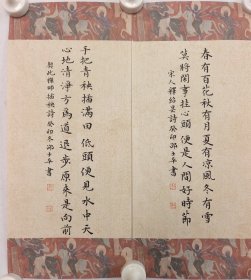 春有百花秋有月夏有涼風冬有雪
莫將閑事挂心頭便是人間好時節
宋人釋紹昙詩癸卯冬書
手把青秧插滿田低頭便見水中天
心地清淨方爲道退步原來是向前
契此禪師插秧詩癸卯冬書